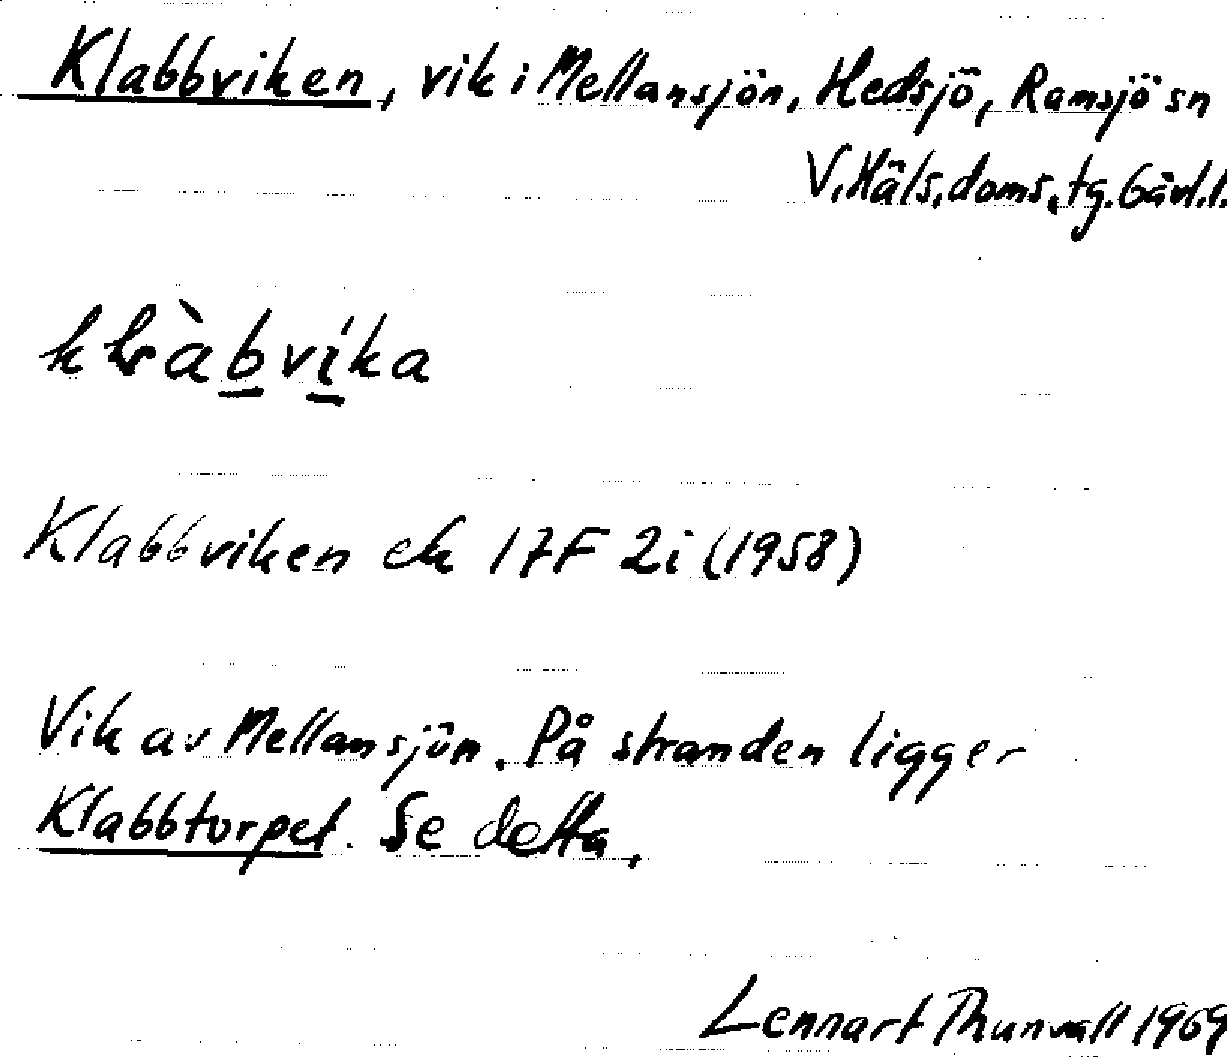 Klabbviken, vik i Mellansjön, Hedsjö, Ramsjö sn
V. Häls. doms. tg. Gävl. l.
Klabbviken ek 17F 2i (1958)
Vik av Mellansjön. På stranden ligger
Klabbtorpet. Se detta.
Lennart Thunvall 1969